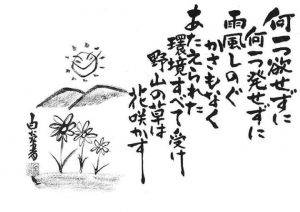 何一つ欲せずに
何一つ発せずに
雨風しのぐ
かさもなく
あたえられた
環境すべて受け
野山の草は
花咲かす